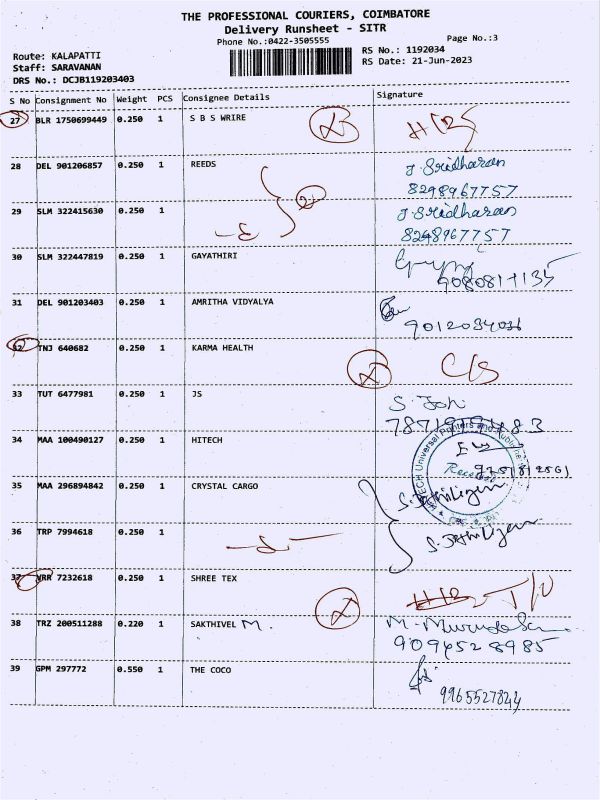 THE PROFESSIONAL COURIERS, COIMBATORE
Delivery Runsheet - SITR
Phone No.:0422-3505555
Page No.:3
Route: KALAPATTI
Staff: SARAVANAN
DRS No.: DCJB119203403
RS No.: 1192034
RS Date: 21-Jun-2023
S No Consignment No Weight PCS Consignee Details Signature
27 BLR 1750699449 0.250 1 S B S WRIRE
28 DEL 901206857 0.250 1 REEDS J. Sridharan
8298967757
29 SLM 322415630 0.250 1 J. Sridharan
8298967757
30 SLM 322447819 0.250 1 GAYATHIRI
31 DEL 901203403 0.250 1 AMRITHA VIDYALYA
32 TNJ 640682 0.250 1 KARMA HEALTH
33 TUT 6477981 0.250 1 JS
34 MAA 100490127 0.250 1 HITECH
35 MAA 296894842 0.250 1 CRYSTAL CARGO
36 TRP 7994618 0.250 1
37 VRR 7232618 0.250 1 SHREE TEX
38 TRZ 200511288 0.220 1 SAKTHIVEL M.
9094528985
39 GPM 297772 0.550 1 THE COCO
9965527844